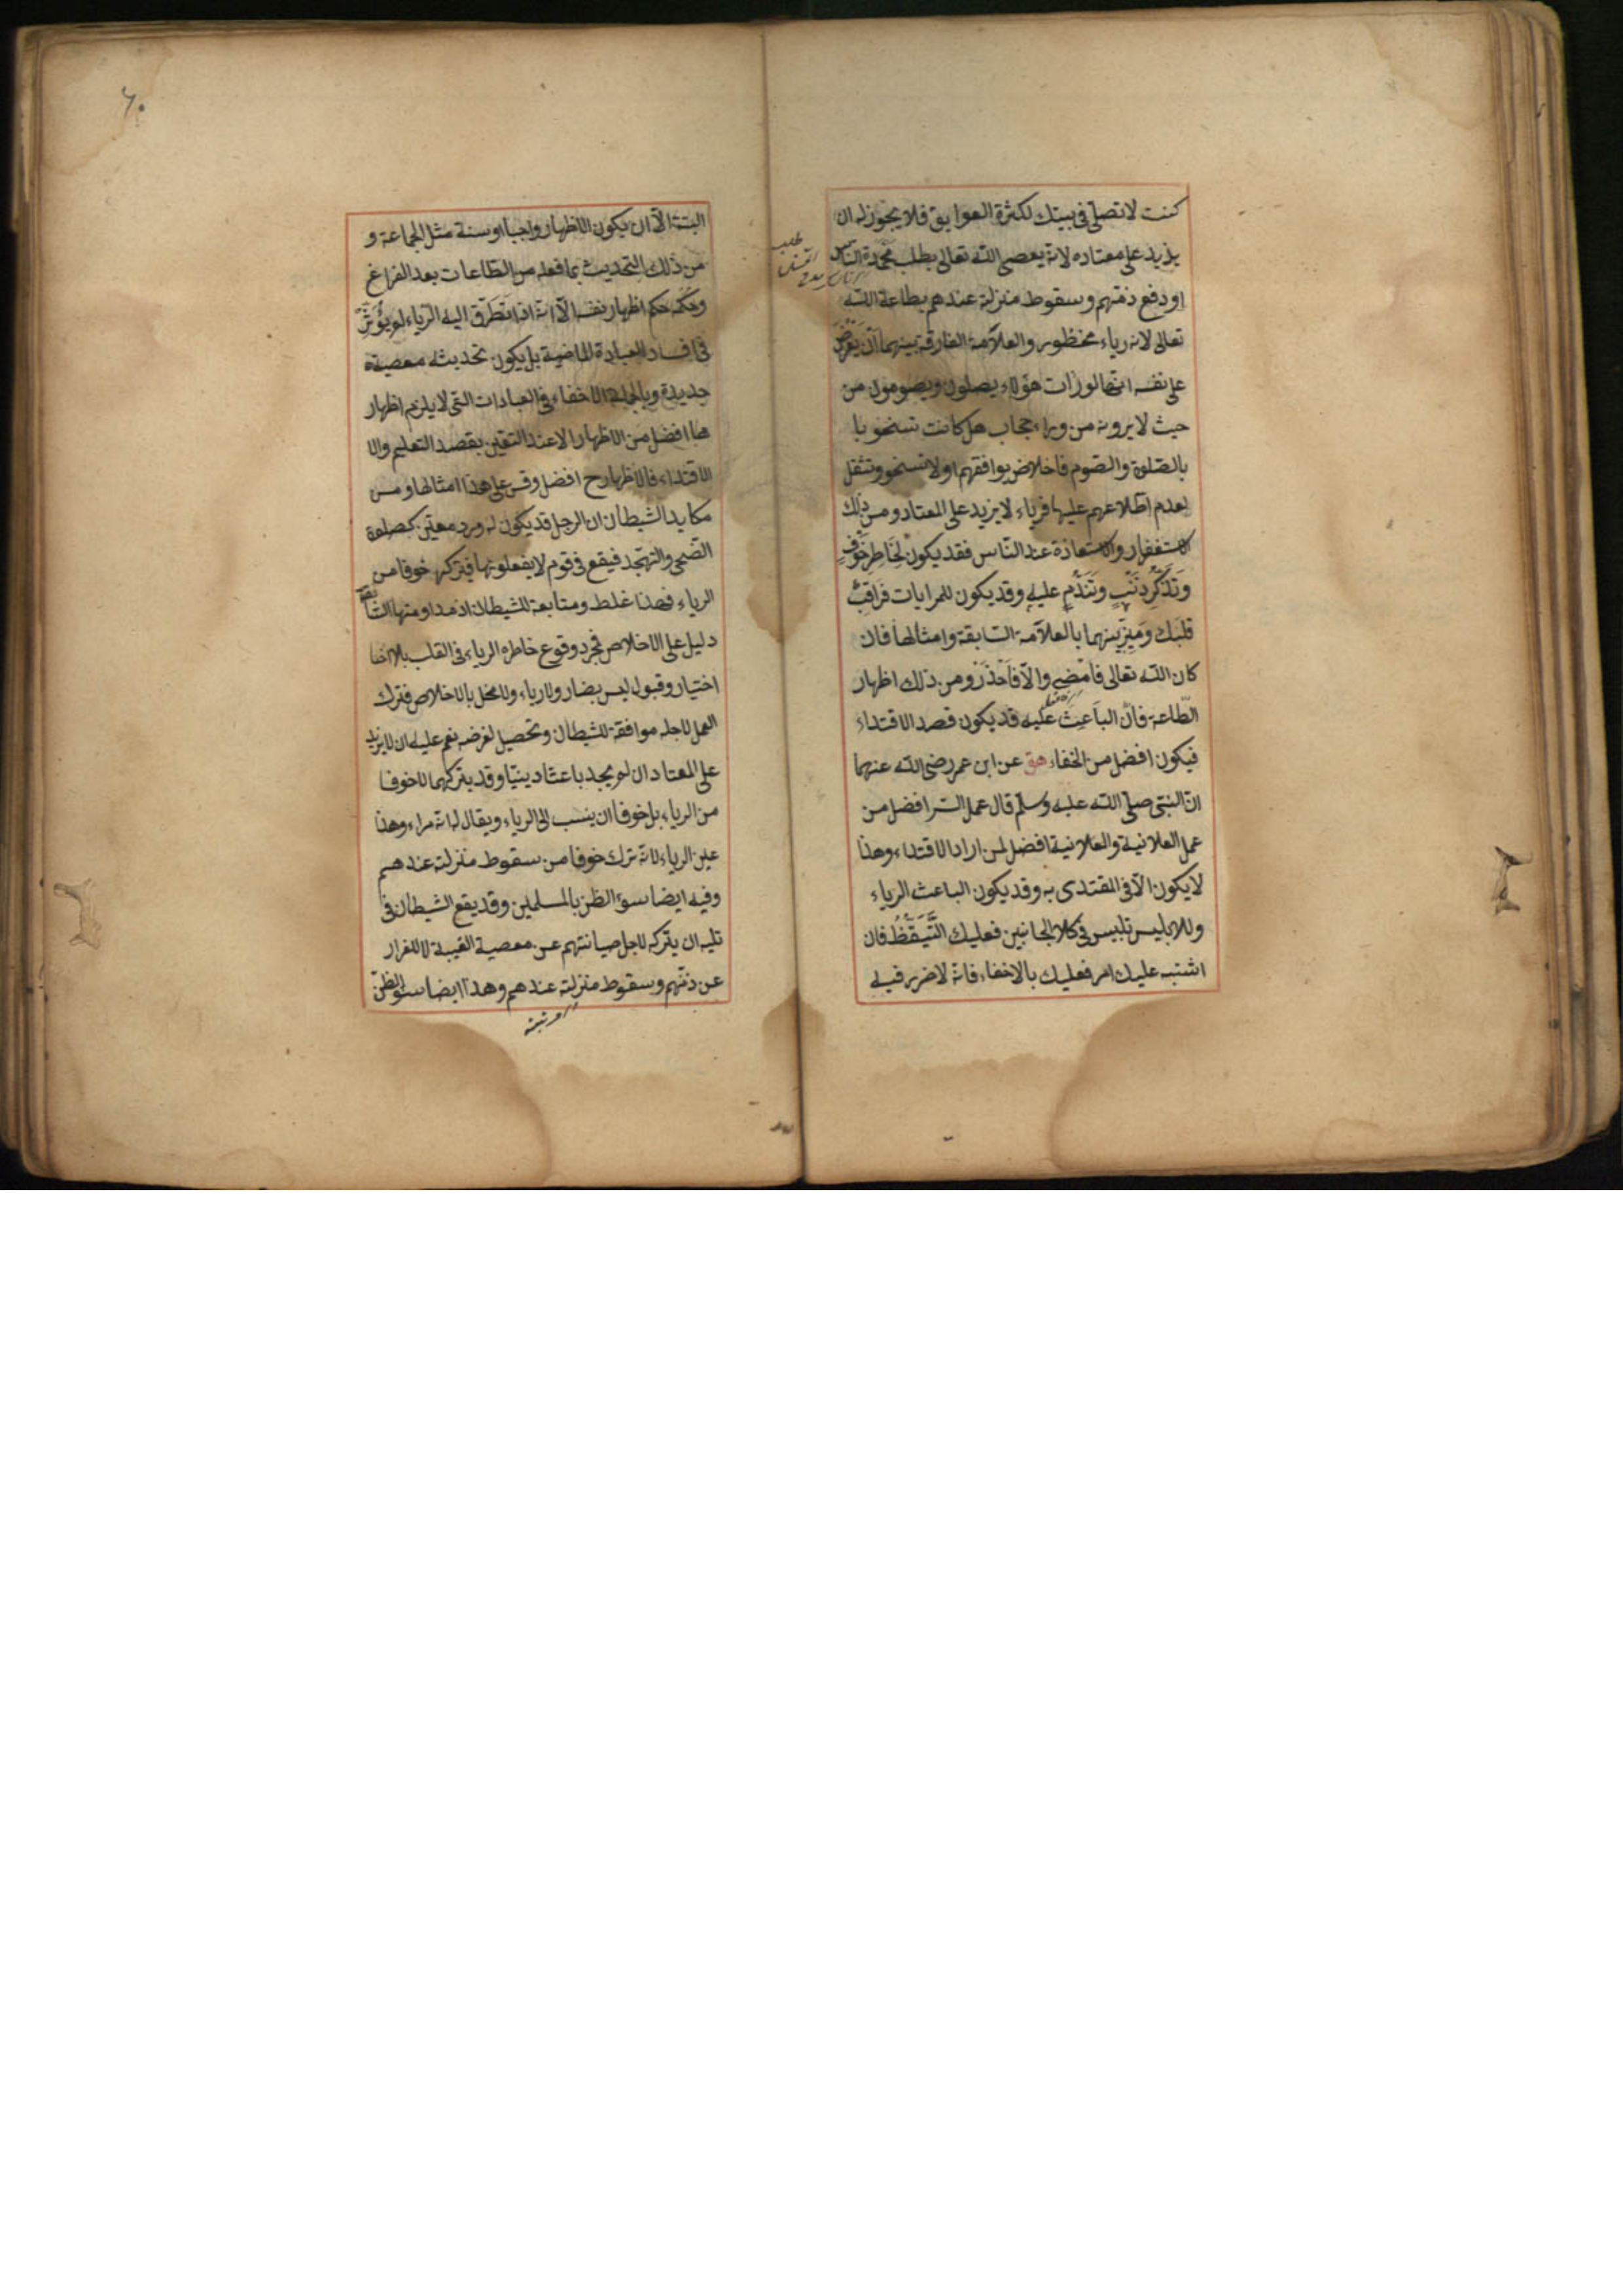 كنت لا تصلي في بيتك لكثرة العوايق فلا يجوز له ان
يزيد على معتاده لانه يعصي الله تعالى بطلب محمدة الناس
او دفع ذمتهم وسقوط منزلته عندهم بطاعة الله
تعالى لانه رياء محظور والعلامة الفارقة بينهما ان يعرض
على نفسه انها لو رات هؤلاء يصلون ويصومون من
حيث لا يرونه من وراء حجاب هل كانت تسخو با
بالصلوة والصوم فاخلاص يوافقهم او لا تسخو وتثقل
لعدم اطلاعهم عليها فرياء لا يزيد على المعتاد ومن ذلك
الاستغفار والاستعاذة عند الناس فقد يكون لخاطر خوف
وتذكر ذنب وتندم عليه وقد يكون للمرايات فراقب
قلبك وميز بينهما بالعلامة السابقة وامثالها فان
كان لله تعالى فامضه والا فاحذر ومن ذلك اظهار
الطاعة فان الباعث عليه قد يكون قصد الاقتداء
فيكون افضل من الخفاء هق عن ابن عمر رضي الله عنهما
ان النبي صلى الله عليه وسلم قال عمل السر افضل من
عمل العلانية والعلانية افضل لمن اراد الاقتداء وهذا
لا يكون الا في المقتدى به وقد يكون الباعث الرياء
وللابليس تلبيس في كلا الجانبين فعليك التيقظ فان
اشتبه عليك امر فعليك بالاخفاء فانه لا ضرر فيه
٦٠
البتة الا ان يكون الاظهار واجبا او سنة مثل الجماعة و
من ذلك التحديث بما فعله من الطاعات بعد الفراغ
وحكمه حكم اظهار نفسه الا انه اذا تطرق اليه الرياء لم يؤثر
في افساد العبادة الماضية بل يكون تحديثه معصية
جديدة وبالجملة الاخفاء في العبادات التي لا يلزم اظهار
ها افضل من الاظهار الا عند التيقن بقصد التعليم والا
الاقتداء فالاظهار ح افضل وقس على هذا امثالها ومن
مكايد الشيطان ان الرجل قد يكون له ورد معين كصلوة
الضحى والتهجد فيقع في قوم لا يفعلونها فيتركها خوفا من
الرياء فهذا غلط ومتابعة للشيطان اذ مداومتها السابقة
دليل على الاخلاص فمجرد وقوع خاطره الرياء في القلب بلا
اختيار وقبول ليس بضار ولا رياء ولا مخل بالاخلاص فترك
العمل لاجله موافقة للشيطان وتحصيل لغرضه نعم عليه ان لا يزيد
على المعتاد ان لم يجد باعثا دينيا وقد يتركها لا خوفا
من الرياء بل خوفا ان ينسب الى الرياء ويقال له انه مراء وهذا
عين الرياء لانه ترك خوفا من سقوط منزلته عندهم
وفيه ايضا سوء الظن بالمسلمين وقد يقع الشيطان في
قلبه ان يتركه لاجل صيانتهم عن معصية الغيبة لا للفرار
عن ذمتهم وسقوط منزلته عندهم وهذا ايضا سوء الظن